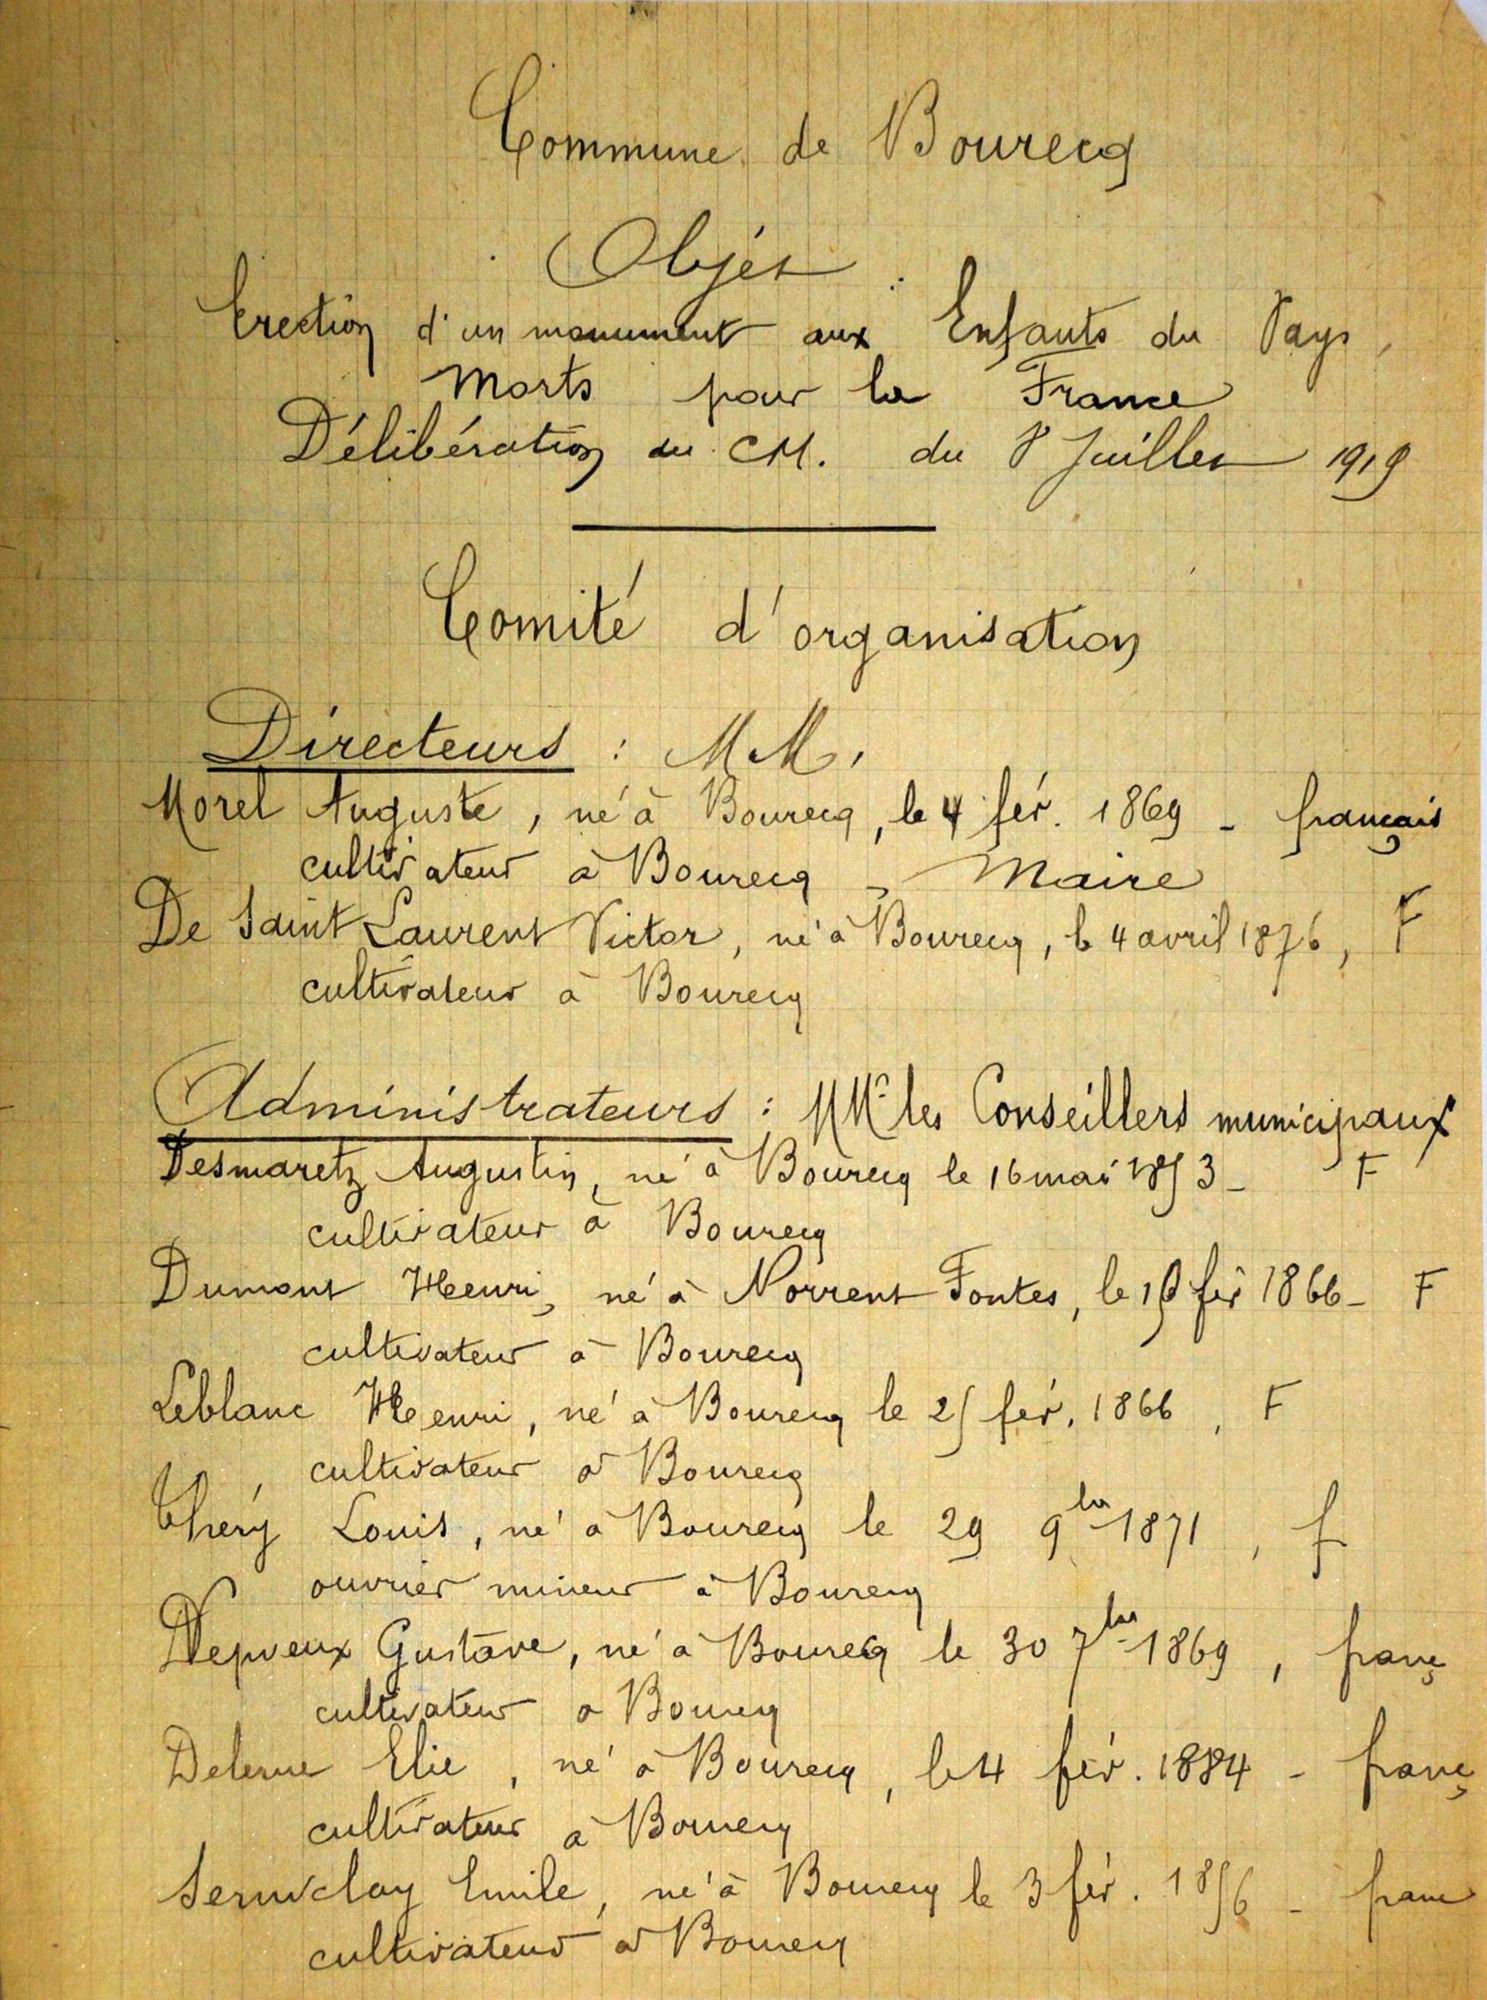 Commune de Bourecq
Objet :
Erection d'un monument aux Enfants du Pays,
Morts pour la France
Délibération du CM. du 8 Juillet 1919
Comité d'organisation
Directeurs : MM.
Morel Auguste, né à Bourecq, le 4 fév. 1869 - français
cultivateur à Bourecq, Maire
De Saint Laurent Victor, né à Bourecq, le 4 avril 1876, F
cultivateur à Bourecq
Administrateurs : MM. les Conseillers municipaux
Desmaretz Augustin, né à Bourecq le 16 mai 1853 - F
cultivateur à Bourecq
Dumont Henri, né à Norrent Fontes, le fév 1866 - F
cultivateur à Bourecq
Leblanc Henri, né à Bourecq le 25 fév. 1866, F
cultivateur à Bourecq
Théry Louis, né à Bourecq le 29 9bre 1871, f
ouvrier mineur à Bourecq
Nepveux Gustave, né à Bourecq le 30 7bre 1869, franç
cultivateur à Bourecq
Delerue Elie, né à Bourecq, le 4 fév. 1884 - franç
cultivateur à Bourecq
Emile, né à Bourecq le 3 fév. 1856 - franc
cultivateur à Bourecq